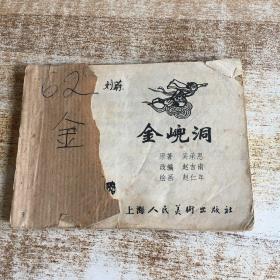 62
刘蔚
金
金𠒇洞
原著 吴承恩
改编 赵吉南
绘画 赵仁年
上海人民美術出版社